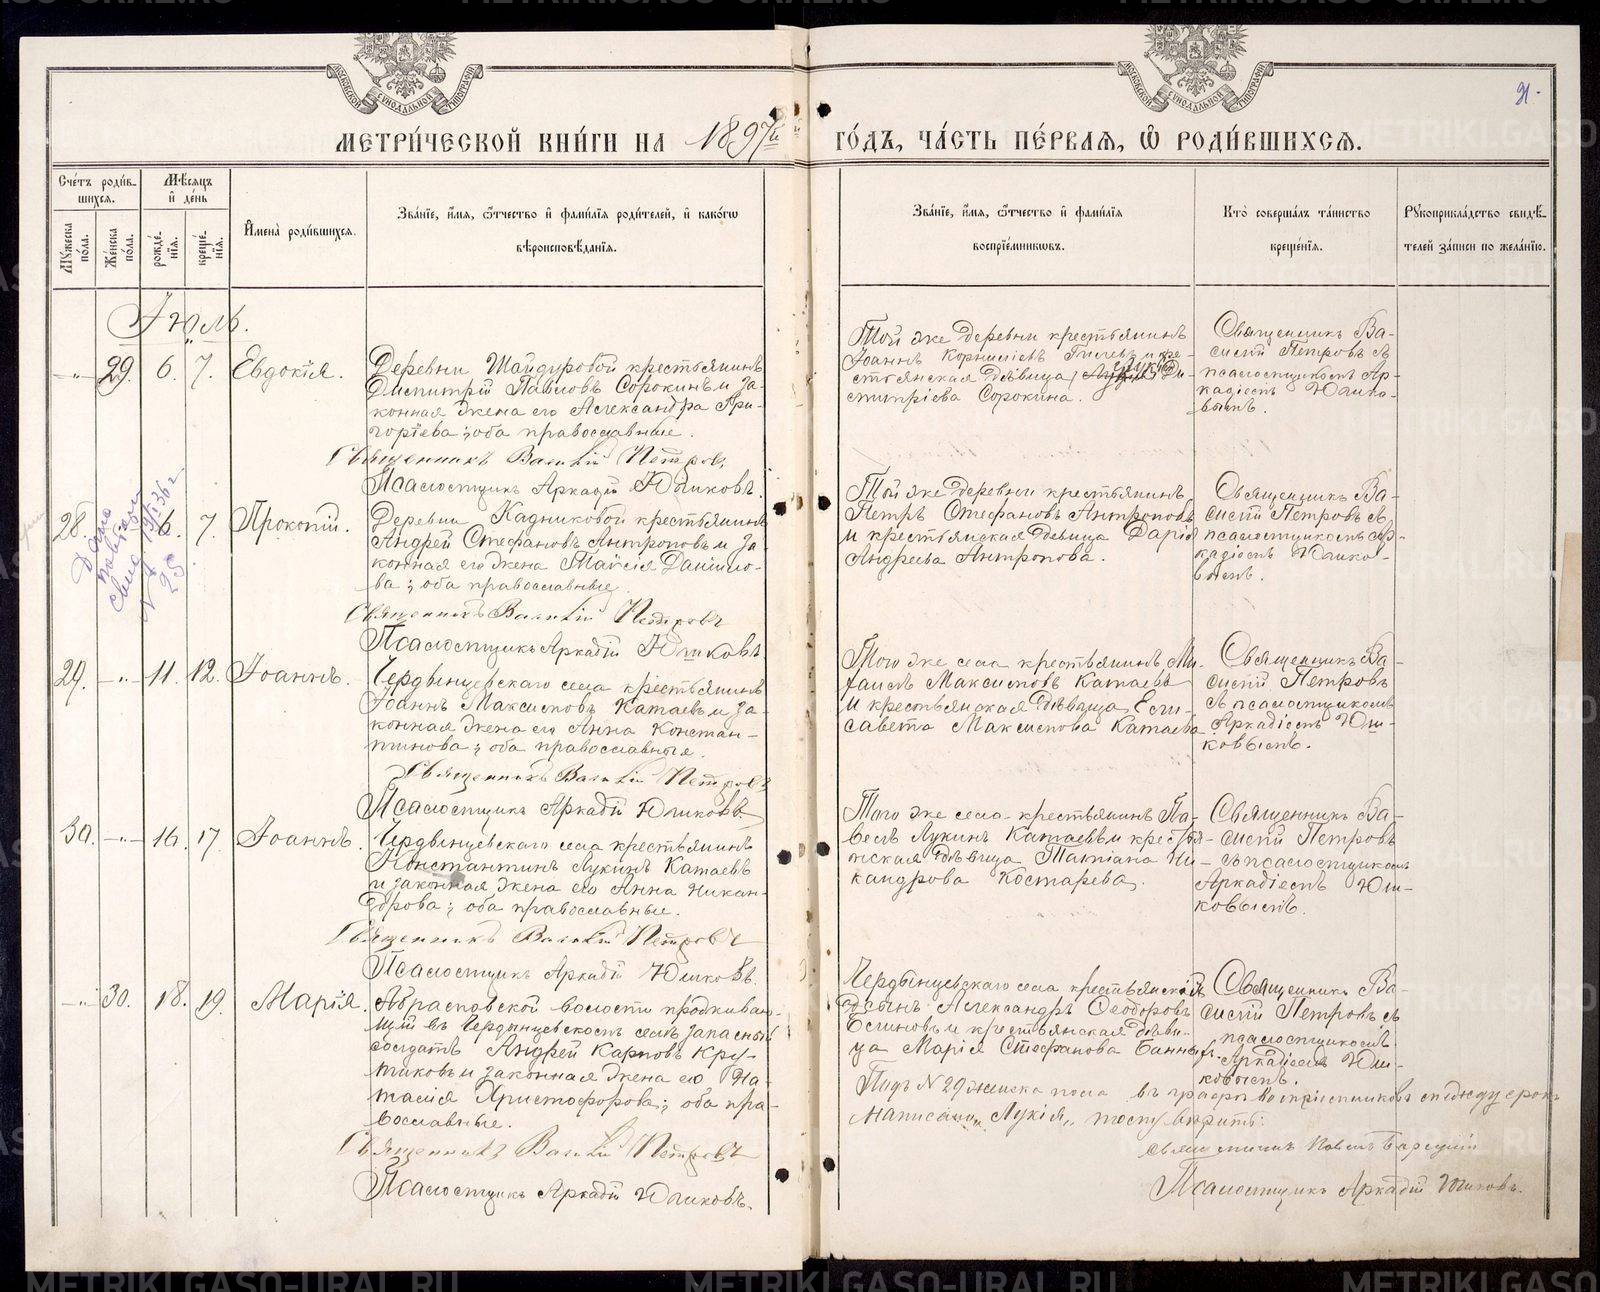 МОСКОВСКОЙ СѴНОДАЛЬНОЙ ТИПОГРАФІИ
МОСКОВСКОЙ СѴНОДАЛЬНОЙ ТИПОГРАФІИ
МЕТРИ́ЧЕСКОЙ КНИ́ГИ НА 1897й ГО́ДЪ, ЧА́СТЬ ПЕ́РВАЯ, Ѽ РОДИ́ВШИХСЯ.
Сче́тъ роди́в-
шихся.
Мѣ́сяцъ
и҆ де́нь
Мꙋ́жеска
по́ла.
Же́нска
по́ла.
рожде́-
нїя.
креще́-
нїя.
И҆мена̀ роди́вшихся.
Зва́нїе, и҆́мя, ѻ҆́тчество и҆ фами́лїя роди́телей, и҆ како́гѡ
вѣроисповѣ́данїя.
Зва́нїе, и҆́мя, ѻ҆́тчество и҆ фами́лїя
воспрїе́мникѡвъ.
Кто̀ соверша́лъ та́инство
креще́нїя.
Рꙋкоприкла́дство свидѣ́-
телей за́писи по жела́нїю.
Іюль.
-„- 29. 6. 7. Евдокія.
Деревни Шайдуровой крестьянинъ
Димитрій Павловъ Сорокинъ и за-
конная жена его Александра Гри-
горіева; оба православные.
Священникъ Василій Петровъ
Псаломщикъ Аркадій Юшковъ.
Той же деревни крестьянинъ
Іоаннъ Корниліевъ и кре-
стьянская дѣвица Лукія Ди-
митріева Сорокина.
Священникъ Ва-
силій Петровъ съ
псаломщикомъ Ар-
кадіемъ Юшко-
вымъ.
28. 6. 7. Прокопій.
Дано
1936 г
№ 25
Деревни Кадниковой крестьянинъ
Андрей Стефановъ Антроповъ и за-
конная его жена Таисія Данило-
ва; оба православные.
Священникъ Василій Петровъ
Псаломщикъ Аркадій Юшковъ.
Той же деревни крестьянинъ
Петръ Стефановъ Антроповъ
и крестьянская дѣвица Дарія
Андреева Антропова.
Священникъ Ва-
силій Петровъ съ
псаломщикомъ Ар-
кадіемъ Юшко-
вымъ.
29. -„- 11. 12. Іоаннъ.
Чердынцевскаго села крестьянинъ
Іоаннъ Максимовъ Катаевъ и за-
конная жена его Анна Констан-
тинова; оба православные.
Священникъ Василій Петровъ
Псаломщикъ Аркадій Юшковъ
Того же села крестьянинъ Ми-
хаилъ Максимовъ Катаевъ
и крестьянская дѣвица Ели-
савета Максимова Катаева
Священникъ Ва-
силій Петровъ
съ псаломщикомъ
Аркадіемъ Юш-
ковымъ.
30. -„- 16. 17. Іоаннъ.
Чердынцевскаго села крестьянинъ
Константинъ Лукинъ Катаевъ
и законная жена его Анна Никан-
дрова; оба православные.
Священникъ Василій Петровъ
Псаломщикъ Аркадій Юшковъ.
Того же села крестьянинъ Па-
велъ Лукинъ Катаевъ и крестья-
нская дѣвица Татіана Ни-
кандрова Костарева.
Священникъ Ва-
силій Петровъ
съ псаломщикомъ
Аркадіемъ Юш-
ковымъ.
-„- 30. 18. 19. Марія.
Абрамовской волости проживаю-
щій въ Чердынцевскомъ селѣ запасный
солдатъ Андрей Карповъ Кру-
тиковъ и законная жена его На-
талія Христофорова; оба пра-
вославные.
Священникъ Василій Петровъ
Псаломщикъ Аркадій Юшковъ.
Чердынцевскаго села крестьянскій
сынъ Александръ Ѳеодоровъ
Блиновъ и крестьянская дѣви-
ца Марія Стефанова Банных.
Священникъ Ва-
силій Петровъ съ
псаломщикомъ
Аркадіемъ Юш-
ковымъ.
Подъ № 29 женска пола въ графѣ воспріемниковъ между строкъ
написано „Лукія„ тому вѣрить:
Священникъ
Псаломщикъ Аркадій Юшковъ.
METRIKI.GASO-URAL.RU